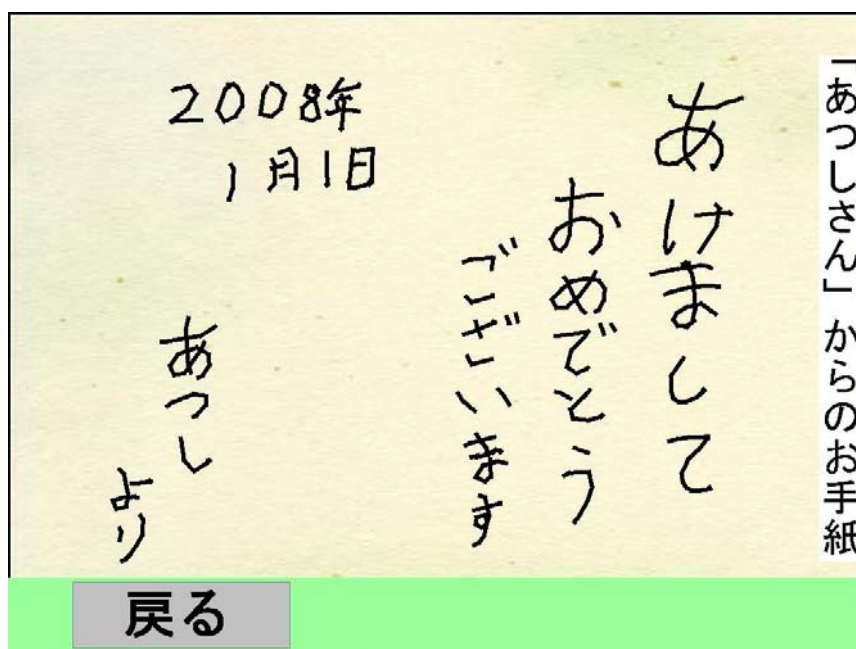 「あつしさん」からのお手紙
あけまして
おめでとう
ございます
2008年
1月1日
あつし
より
戻る